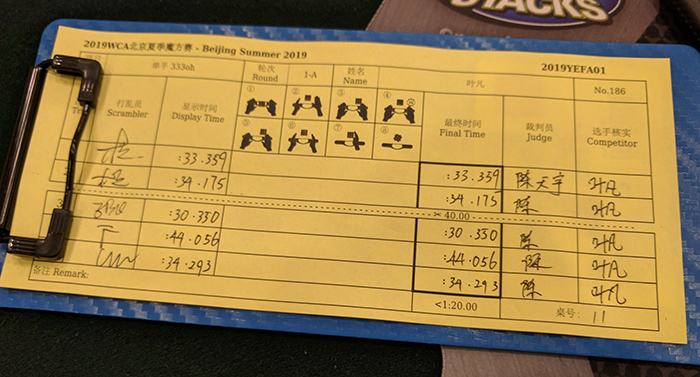 STACKS
2019WCA北京夏季魔方赛 - Beijing Summer 2019 2019YEFA01
单手 333oh 轮次 Round 1-A 姓名 Name 叶凡 No.186
打乱员 Scrambler 显示时间 Display Time ① ② ③ ④ ⑤ ⑥ ⑦ ⑧ 最终时间 Final Time 裁判员 Judge 选手核实 Competitor
:33.359 :33.359 陈天宇 叶凡
:34.175 :34.175 陈 叶凡
< 40.00
3 :30.330 :30.330 陈 叶凡
:44.056 :44.056 陈 叶凡
:34.293 :34.293 陈 叶凡
备注 Remark: <1:20.00 桌号: 11